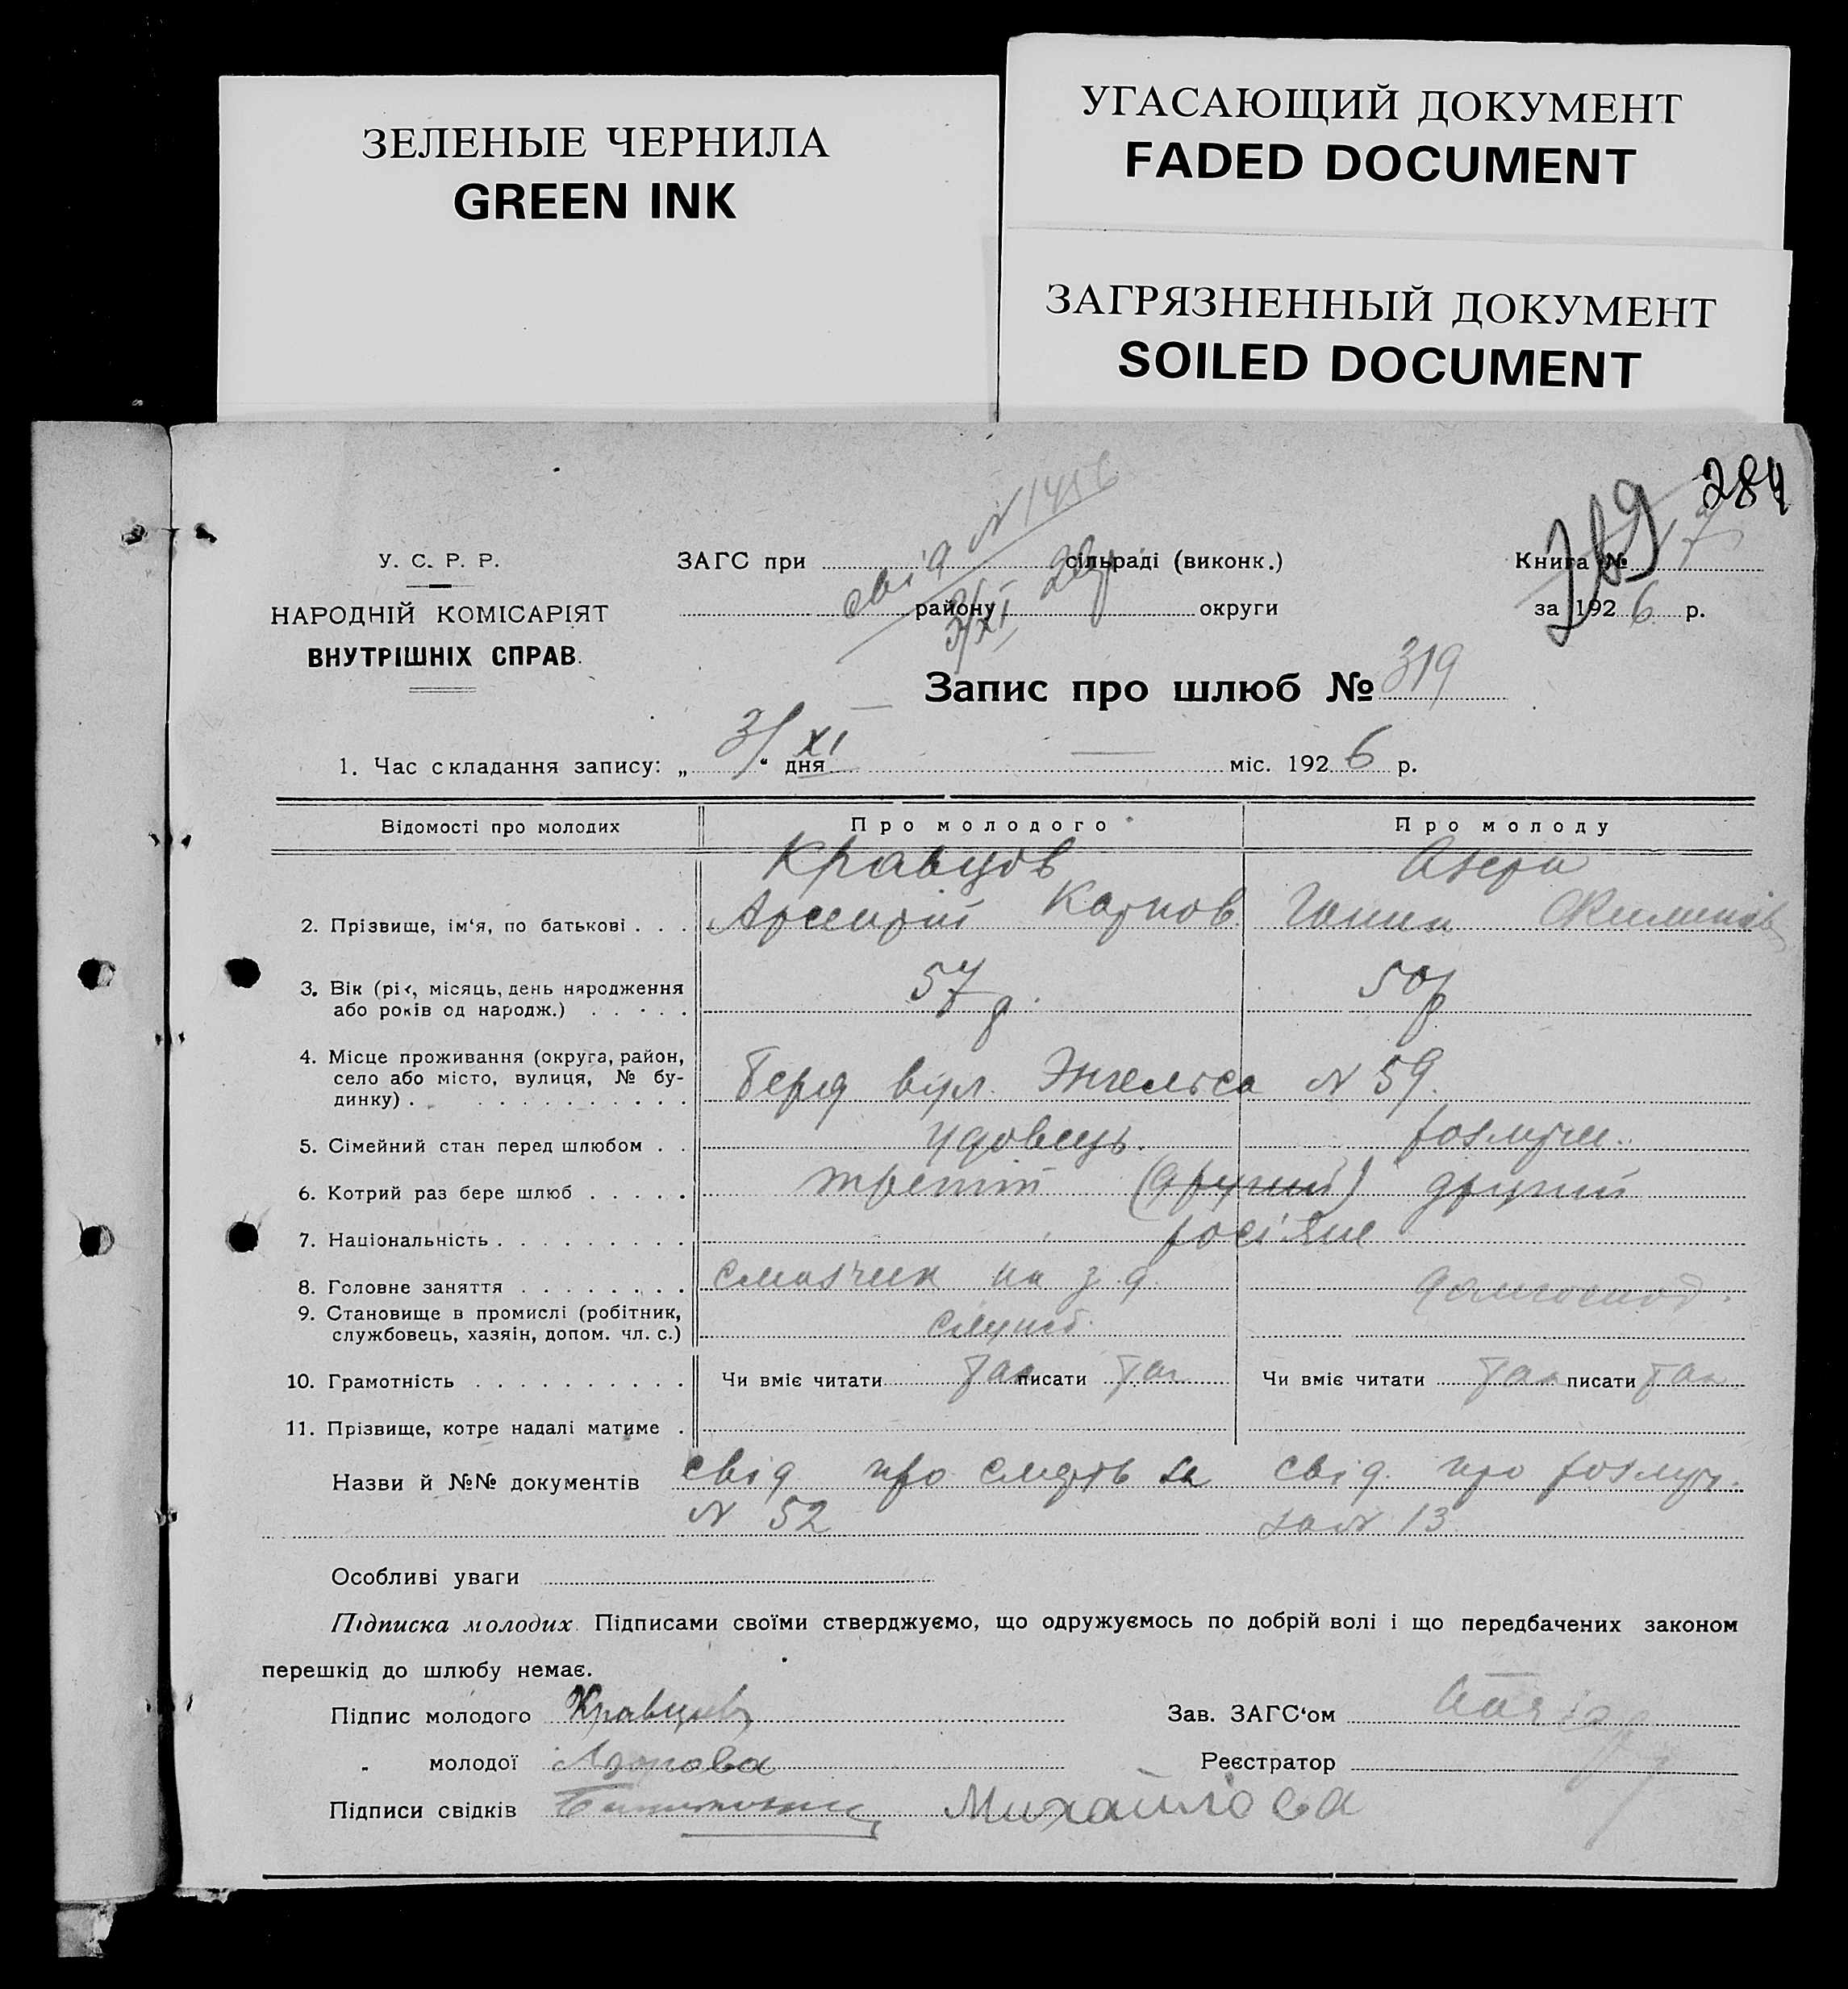 ЗЕЛЕНЫЕ ЧЕРНИЛА
GREEN INK
УГАСАЮЩИЙ ДОКУМЕНТ
FADED DOCUMENT
ЗАГРЯЗНЕННЫЙ ДОКУМЕНТ
SOILED DOCUMENT
284
319
свід N 1456
3/XI
У. С. Р. Р.
НАРОДНІЙ КОМІСАРІЯТ
ВНУТРІШНІХ СПРАВ.
ЗАГС при сільраді (виконк.)
району округи
Книга № 17
за 1926 р.
Запис про шлюб № 319
1. Час складання запису: „3/“ дня XI міс. 1926 р.
Відомості про молодих Про молодого Про молоду
Кравцов
2. Прізвище, ім‘я, по батькові . . . Карпов
3. Вік (рік, місяць, день народження 57 р. 50 р
або років од народж.) . . . . .
4. Місце проживання (округа, район,
село або місто, вулиця, № бу- вул. Энгельса N 59.
динку) . . . . . . . . . . .
5. Сімейний стан перед шлюбом . . удовець. розлуч..
6. Котрий раз бере шлюб . . . . . третій (другий) другий
7. Національність . . . . . . . . . росіяне
8. Головне заняття . . . . . . . . смазчик на з. д. домгоспод.
9. Становище в промислі (робітник, служб.
службовець, хазяін, допом. чл. с.)
10. Грамотність . . . . . . . . . . Чи вміє читати так писати так Чи вміє читати так писати так
11. Прізвище, котре надалі матиме .
Назви й №№ документів свід про смерть за свід. про розлуч.
N 52 за N 13
Особливі уваги
Підписка молодих. Підписами своїми стверджуємо, що одружуємось по добрій волі і що передбачених законом
перешкід до шлюбу немає.
Підпис молодого Кравцов Зав. ЗАГС‘ом
„ молодої Реєстратор
Підписи свідків Михайлова